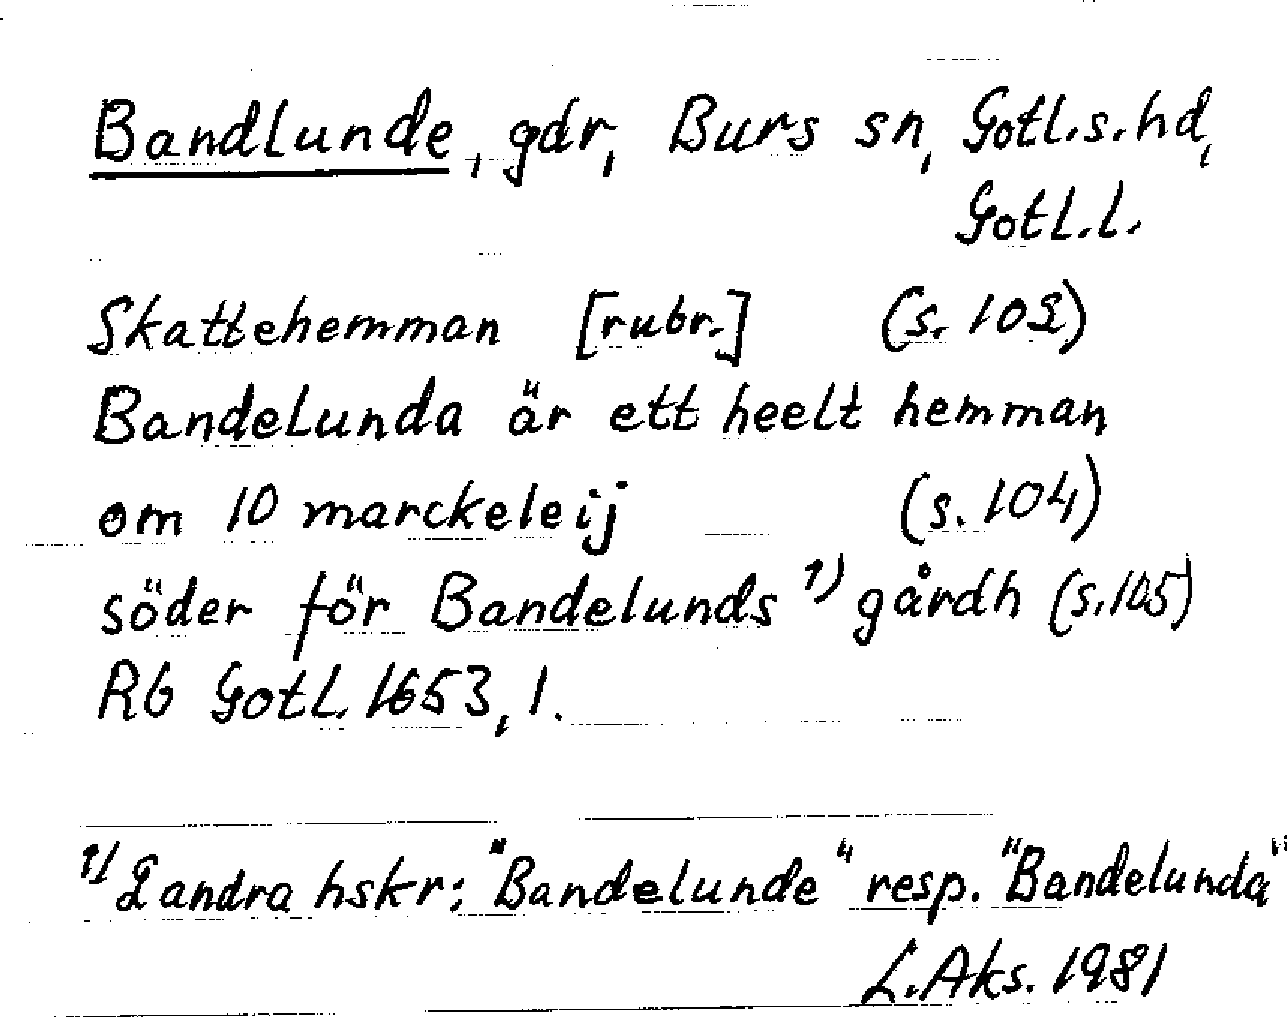 Bandlunde, gdr, Burs sn, Gotl.s.hd,
Gotl.l.
Skattehemman [rubr.] (s. 102)
Bandelunda är ett heelt hemman
om 10 marckeleij (s. 104)
söder för Bandelunds 1) gårdh (s. 105)
Rb Gotl. 1653, 1.
1) 2 andra hskr: "Bandelunde" resp. "Bandelunda"
L. Aks. 1981